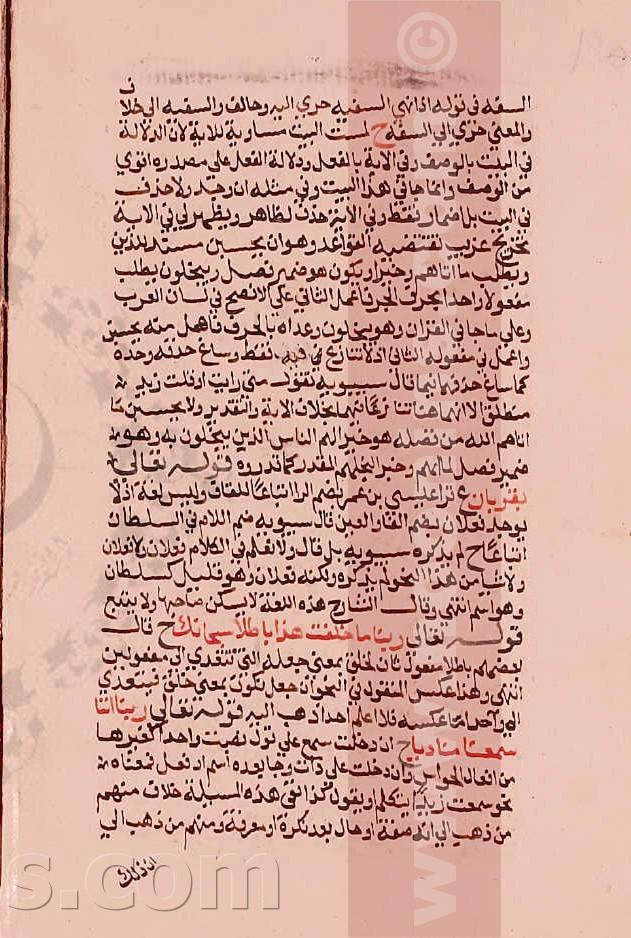 السفه في قوله اذا نهي السفيه جري اليه وخالف والسفيه الي خلاف
والمعني جري الي السفه ح ليست البيت مساوية للاية لان الدلالة
في البيت بالوصف وفي الاية بالفعل ودلالة الفعل على مصدره اقوي
من الوصف وانما جا في هذا البيت وفي مثله ان وجد ولا حذف
في البيت بل اضمار فقط وفي الاية حذف لظاهر ويظهر لي في الاية
تخريج غريب تقتضيه القواعد وهو ان يحسبن مستد للذين
ويطلب ما اتاهم وخيرا ويكون هو ضمير فصل ويبخلون يطلب
مفعولا واحدا بحرف الجر فاعمل الثاني على الافصح في لسان العرب
وعلي ما جا في القران وهو يبخلون وعداه بالحرف فاهمل منه يحسبن
واعمل في مفعوله الثاني اذ لا تنازع في فيه فقط وساغ حذفه وحده
كما ساغ حذفهما فيما قال سيبويه تقول متي رايت او قلت زيد
منطلق الا انهما هنا تنازعا بخلاف الاية والتقدير ولا يحسبن ما
اتاهم الله من فضله هو خيرا لهم الناس الذين يبخلون به وهو
ضمير فصل لما اتاهم وخيرا لبخلهم المقدر كما قدروه قوله تعالي
بقربان ع قرا عيسي بن عمر بضم الرا اتباعا للقاف وليس لغة اذ لا
يوجد فعلان بضم الفا والعين قال سيبويه ضم اللام في السلطان
اتباعا ح لم يذكره سيبويه بل قال ولا نعلم في الكلام فعلان ولا فعلان
ولا شيا من هذا النحو لم يذكره ولكنه فعلان وهو قليل كسلطان
وهو اسم انتهي وقال الشارح هذه اللغة لا يسكن صاحبها ولا يتبع
قوله تعالي ربنا ما خلقت هذا باطلا سبحانك ح قال
بعضهم باطلا مفعول ثان لخلق معني جعله التي تتعدي الي مفعولين
انتهي وهذا عكس المنقول في النحو ان جعل يكون بمعني خلق فيتعدي
الي واحد اما عكسه فلا اعلم احدا ذهب اليه قوله تعالي ربنا اننا
سمعنا مناديا ح ان دخلت سمع علي قول نصبت واحدا كغيرها
من افعال الحواس وان دخلت علي ذات وجا بعده اسم او فعل معناه
نحو سمعت زيدا يتكلم او يقول كذا ففي هذه المسيلة خلاف منهم
من ذهب الي انه صفة او حال بعد نكرة او معرفة ومنهم من ذهب الي
ان ذلك
©
www.
s.com